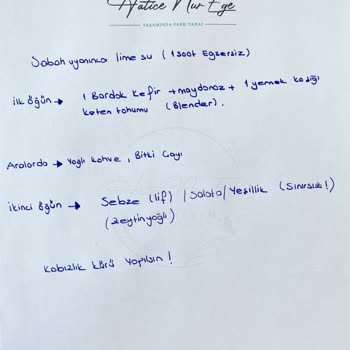 Hatice Nur Ege
YAŞAMINDA FARK YARAT
Sabah uyanınca lime su (1 saat Egzersiz)
İlk öğün → 1 Bardak Kefir + maydanoz + 1 yemek kaşığı
keten tohumu (Blender).
Aralarda → Yağlı kahve, Bitki Çayı
İkinci öğün → Sebze (lif) / Salata / Yeşillik (Sınırsız!)
(Zeytinyağlı)
Kabızlık kürü yapılsın!